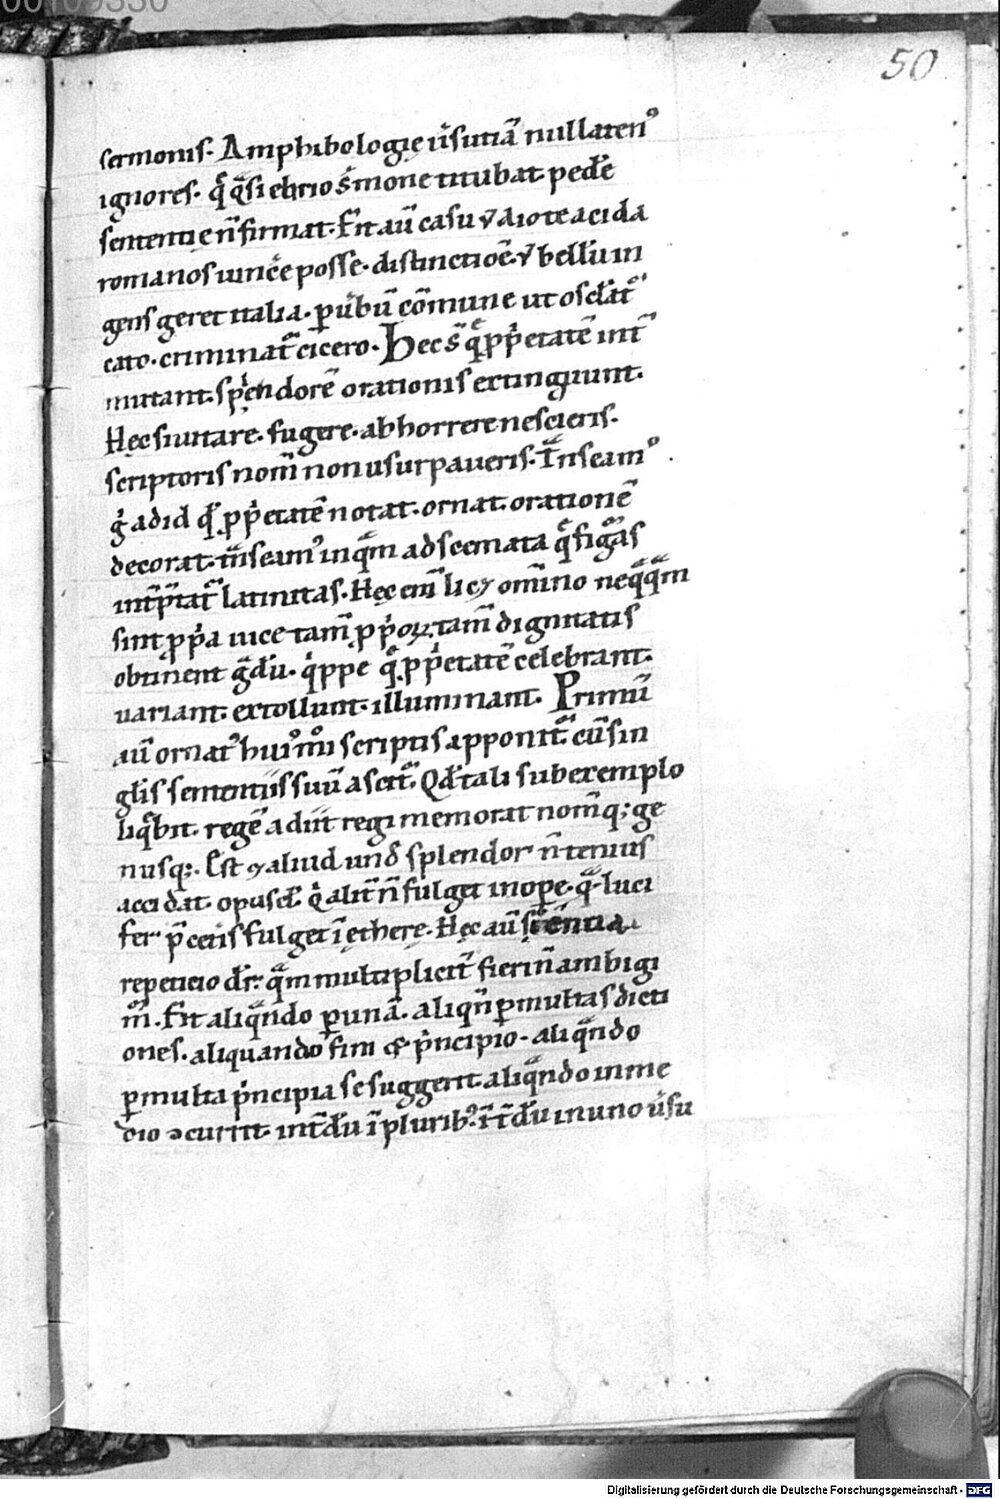 00109330
50
sermonis. Amphibologię ũsutiã nullaten᷒
ignores. q̃ q̃si ebrio s̃mone titubat pede
sententię ñ firmat. Fit aũ casu ṽ aio te acida
romanos uincẽe posse. distinctiõe. ṽ bellũ in
gens geret italia. p ũbũ cõmune ut oscł̃at̃
cato. criminat̃ cicero. Hec s̃ q̃ ꝓp̃etatẽ int̃
mutant. splendorẽ orationis extingũunt.
Hęc si uitare. fugere. abhorrere nescieris.
scriptoris nom̃ non usurpaueris. T̃nseam᷒
g̃ ad id qđ ꝓp̃etatẽ notat. ornat. orationẽ
decorat. t̃nseam᷒ inq̃m ad scemata q̃ fig̃as
int̃p̃tat̃ latinitas. Hęc em̃ licꝫ om̃ino neq̃q̃m
sint ꝓp̃a uice tam̃ ꝓp̃oꝝ, tam̃ dignitatis
obtinent g̃dũ. q̃ppe q̃ ꝓp̃etatẽ celebrant.
uariant. extollunt. illuminant. Primũ
aũ ornat᷒ hui᷒m̃i scriptis apponit̃ cũ sin
gł̃is sententiis suũ ascit̃. Qđ tali sub exemplo
liq̃bit. regẽ adiit regi memorat nom̃q; ge
nusq;. Est ⁊ aliud unđ splendor ñ tenuis
accidat opuscł̃. q̃ alit̃ ñ fulget inope. q̃ luci
fer p̃ cetis fulget ĩ ęthere. Hęc aũ
repeticio dr̃. q̃m multiplicit̃ fieri ñ ambigi
m᷒. Fit aliq̃ndo p unã. aliqñ p multas dicti
ones. aliquando fini ⁊ p̃ncipio. aliq̃ndo
p multa p̃ncipia se suggerit. aliq̃ndo in me
dio ɔcurrit. int̃dũ ĩ plurib᷒. ĩt̃dũ in uno ũsu
Digitalisierung gefördert durch die Deutsche Forschungsgemeinschaft - DFG